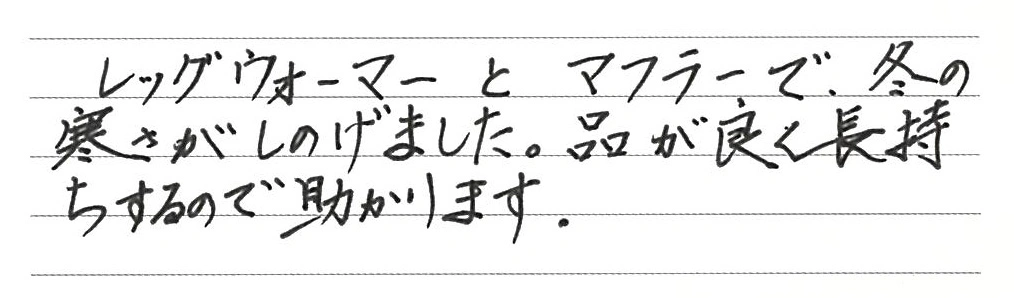 レッグウォーマーと マフラーで、冬の
寒さがしのげました。品が良く長持
ちするので助かります.